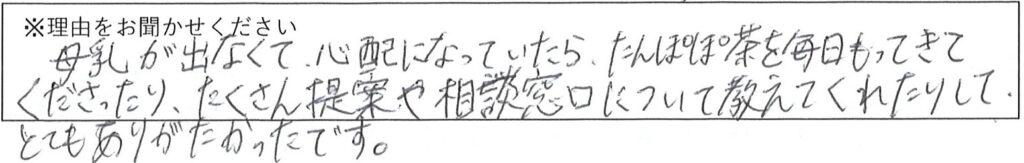 ※理由をお聞かせください
母乳が出なくて、心配になっていたら、たんぽぽ茶を毎日もってきて
くださったり、たくさん提案や相談窓口について教えてくれたりして、
とてもありがたかったです。